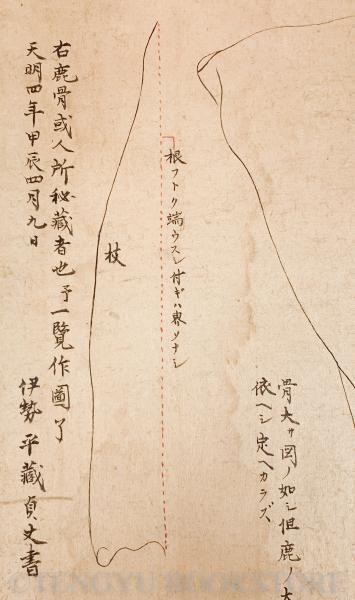 骨大サ図ノ如シ但鹿ノ大
依ヘシ定ヘカラズ
根フトク端ウスシ付ギハ界ソナシ
枝
右鹿骨或人所秘蔵者也予一覧作圖了
天明四年甲辰四月九日
伊勢平蔵貞丈書
©TENGYU BOOKSTORE